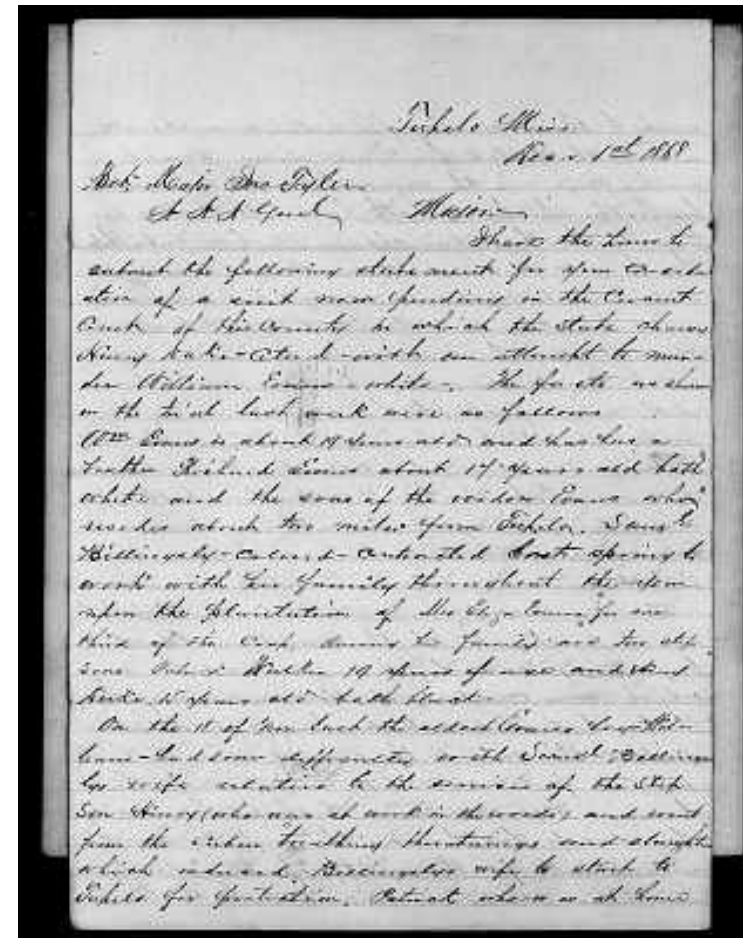 Tupelo Miss
1st 1868
Bvt Major Jno Tyler
A A A Genl
I have the honor to
submit the following statement for your consider
ation of a suit now pending in the Circuit
Court of this County in which the State charges
Henry - Cold - with an attempt to mur-
der William Evans - white -. The facts as shown
on the trial last week were as follows
Wm Evans is about 19 years old and has a
brother Richard Evans about 17 years old both
white and the sons of the widow Evans who
resides about two miles from Tupelo. Saml
Billingsly - Colored - contracted last spring to
work with his family throughout the year
upon the plantation of Mrs Eliza Evans for one
third of the crop, among his family are two step
sons Walker 19 years of age and Henry
15 years old both black
On the 1st of last the eldest Evans boy
had some difficulty with Saml Billings
lys wife relative to the services of the step
son Henry (who was at work in the woods) and went
from the breathing threatenings and slaughter
which induced Billingslys wife to start to
Tupelo for protection. who was at home